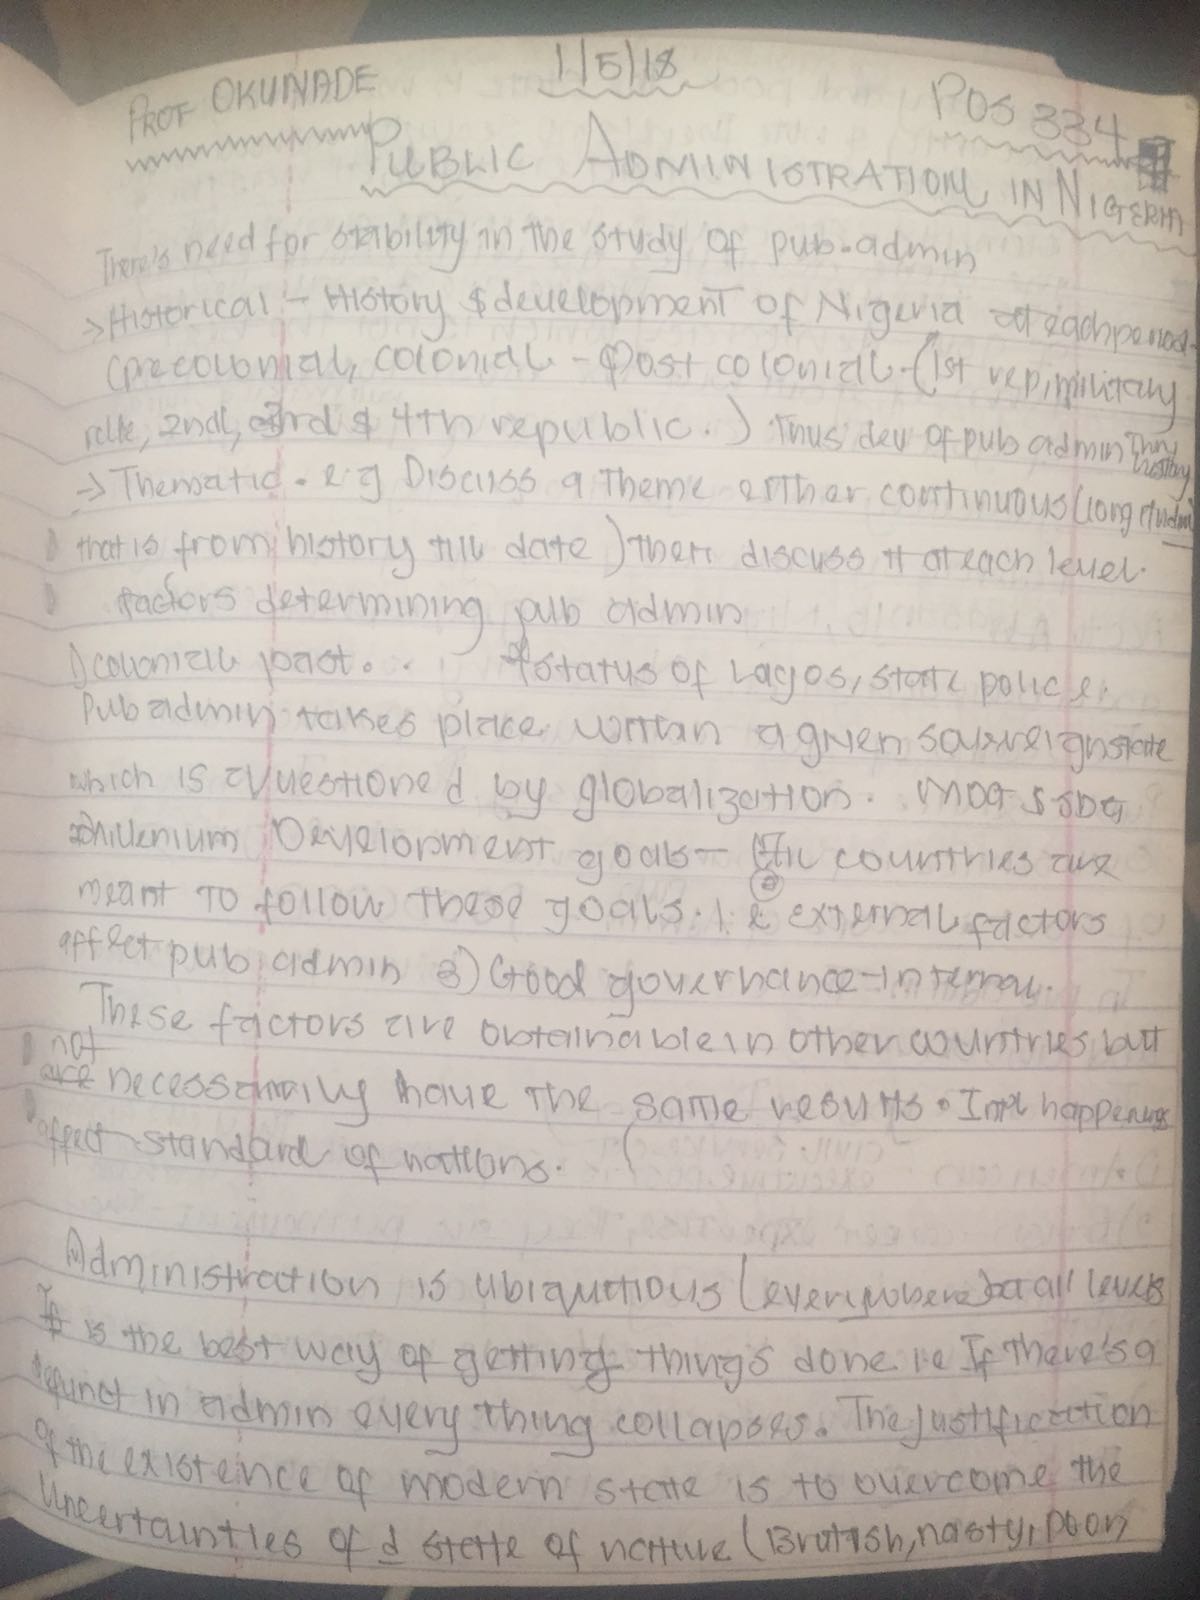 PROF OKUNADE 1/5/18 POS 334
PUBLIC ADMINISTRATION IN NIGERIA
There's need for stability in the study of pub.admin
→ Historical - History & development of Nigeria at each period
(precolonial, colonial - Post colonial - (1st rep, military
rule, 2nd, 3rd & 4th republic.) Thus dev of pub admin thru history
→ Thematic. e.g Discuss a theme either continuous (longitudinal
that is from history till date) then discuss it at each level.
factors determining pub admin
1) colonial past... *status of Lagos, state police.
Pub admin takes place within a given sovereign state
which is questioned by globalization. MDG & SDG
Millenium Development goals - All countries are
meant to follow these goals. i.e ② external factors
affect pub admin 3) Good governance - internal.
These factors are obtainable in other countries but
not necessarily have the same results. Int'l happenings
affect standard of nations. (
Administration is ubiquitious (everywhere) at all levels
It is the best way of getting things done i.e If there's a
defunct in admin every thing collapses. The justification
of the existence of modern state is to overcome the
uncertainties of d state of nature (Brutish, nasty, poor